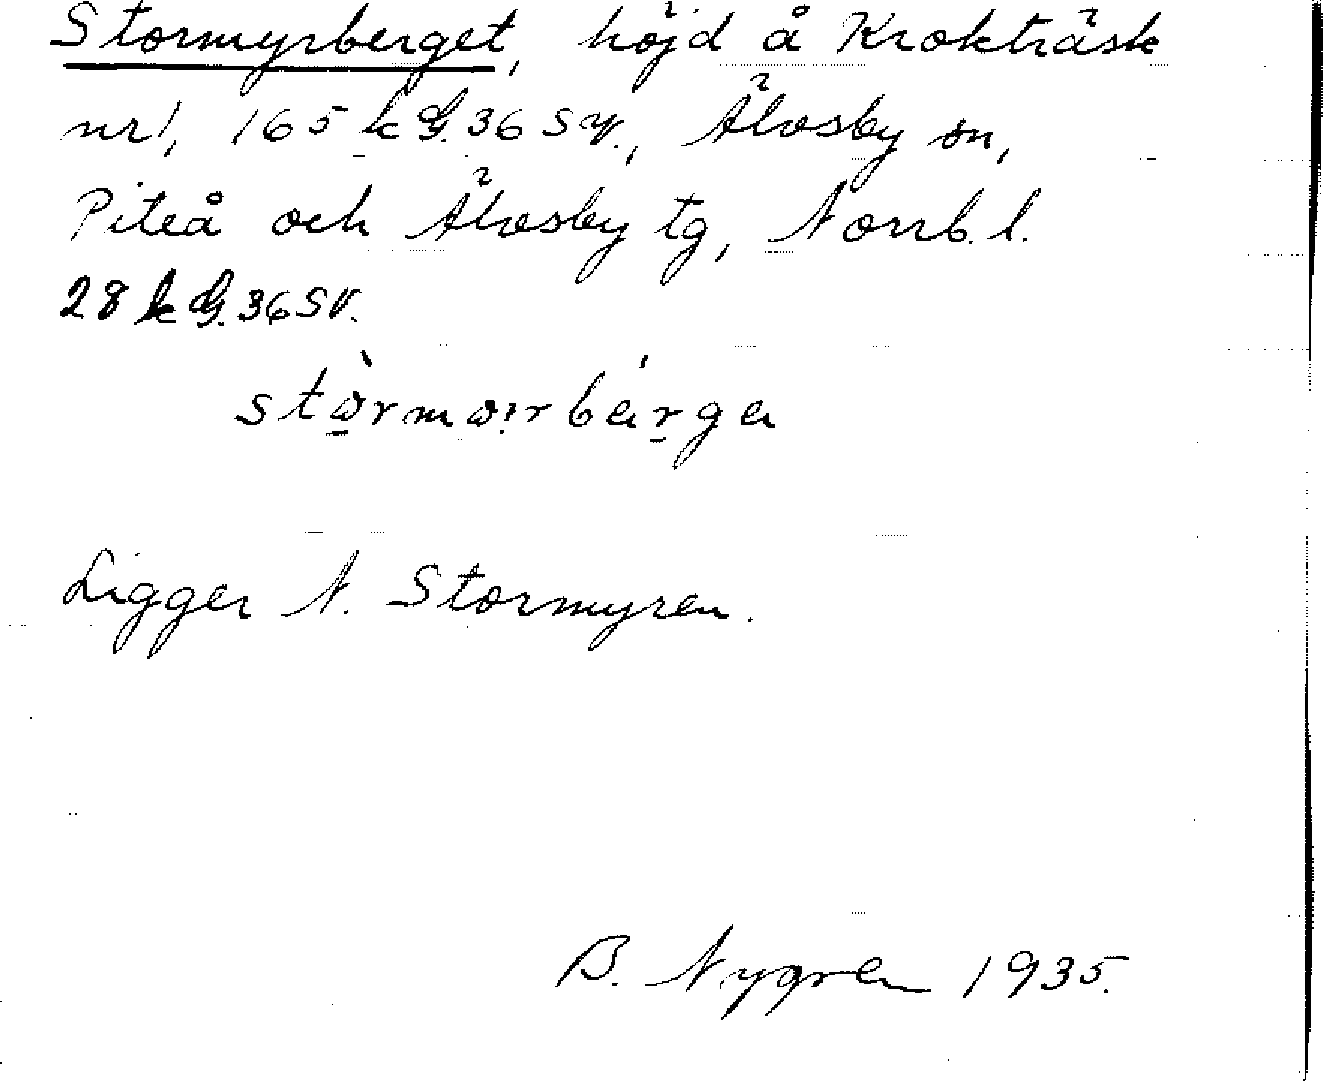 Stormyrberget, höjd å Kroketräsk
nr 1, 165 k G. 36 SV., Älvsby sn,
Piteå och Älvsby tg, Norrb. l.
28 k G. 36 SV.
Ligger N. Stormyren.
B. Nygren 1935.